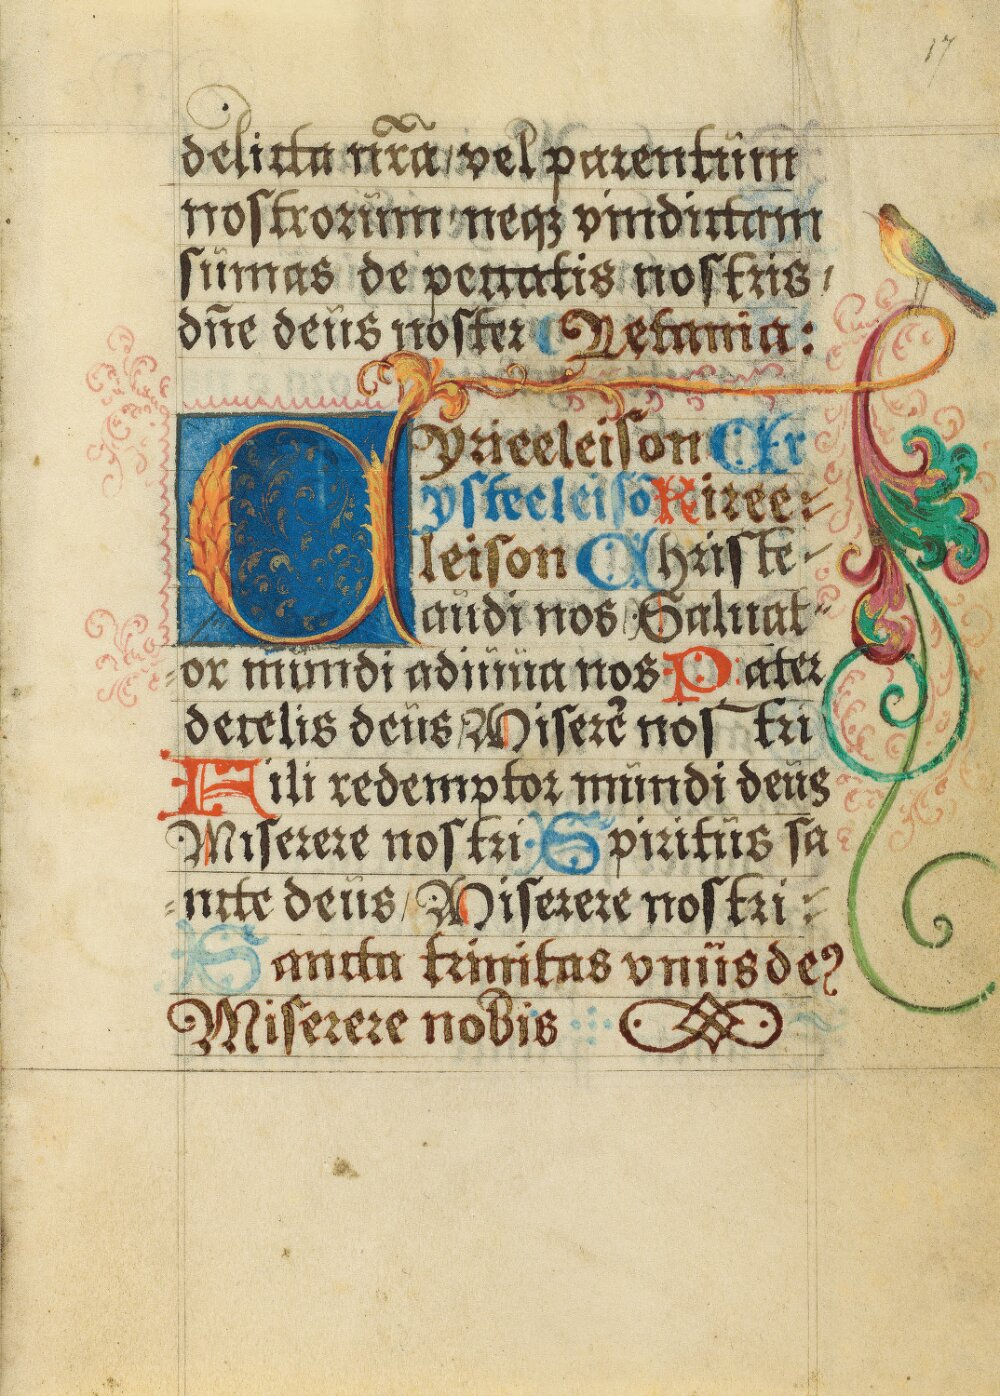 17
delicta nr̄a / vel parentum
nostrorum neqʒ vindictam
sumas de peccatis nostris /
dn̄e deus noster Letania:
Kyrieeleison Chr
ysteeleisō Kiree-
leison Christe-
audi nos Saluat-
or mundi adiuua nos Pater
decelis deus / Miserē nostri
Fili redemptor mundi deus
Miserere nostri Spiritus sa
ncte deus / Miserere nostri
Sancta trinitas vnus de?
Miserere nobis